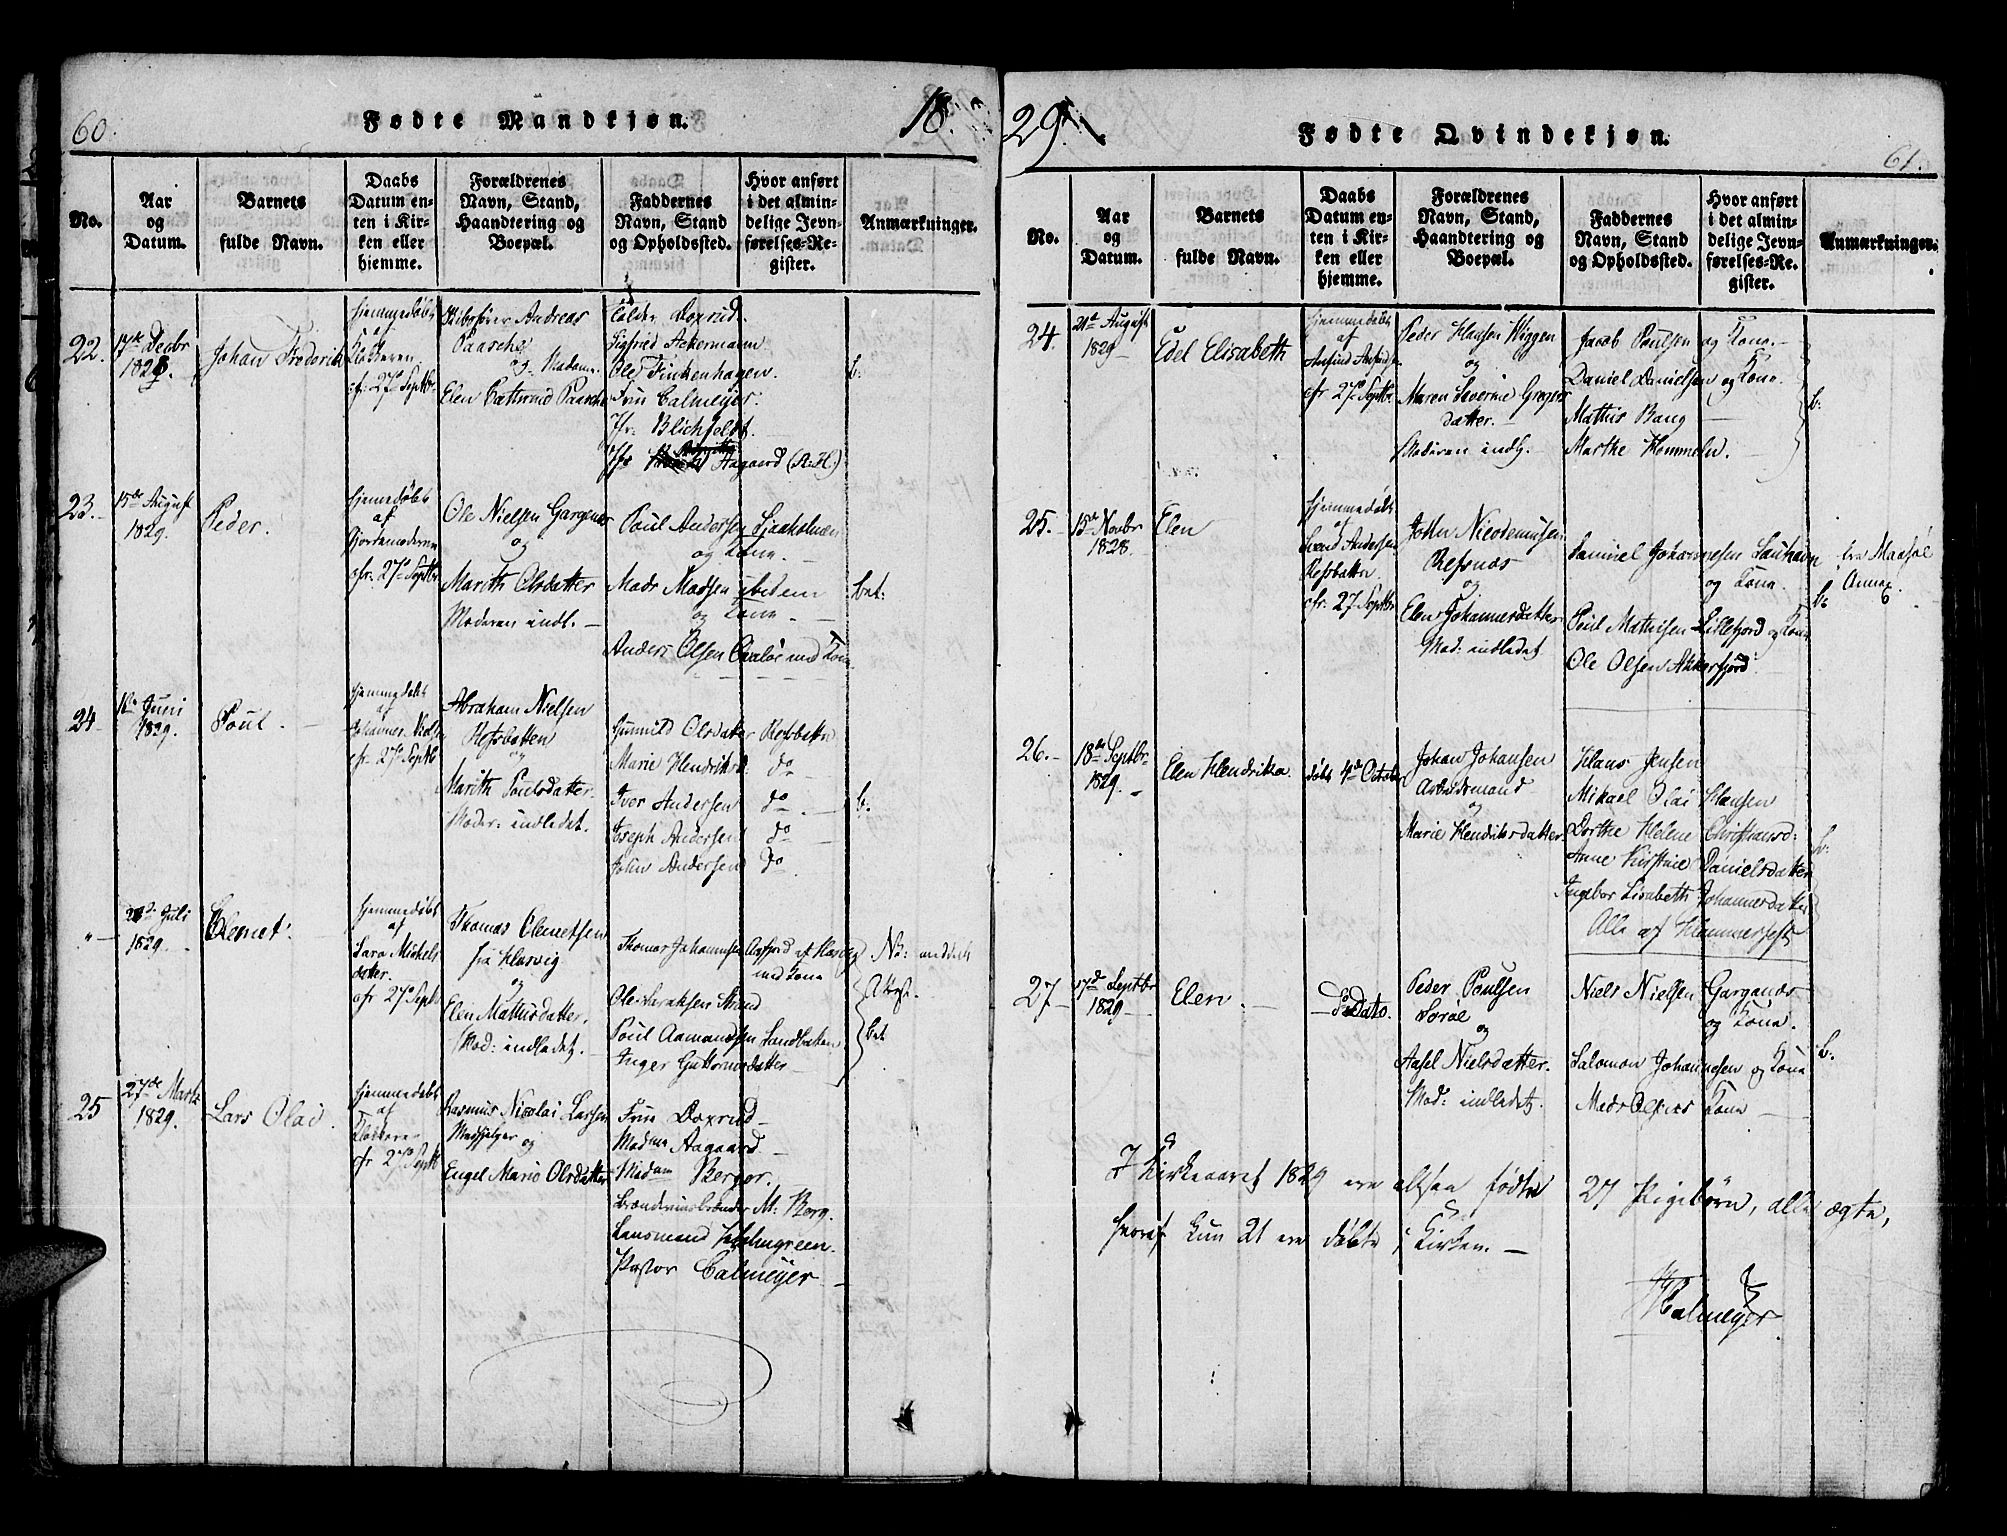 60.
Fødte Mandkjøn.
18
No.
Aar og Datum.
Barnets fulde Navn.
Daabs Datum enten i Kirken eller hjemme.
Forældrenes Navn, Stand, Haandtering og Boepæl.
Faddernes Navn, Stand og Opholdssted.
Hvor anført i det almindelige Jevnførelses-Register.
Anmærkninger.
22.
17de Decbr
1828.
Johan Frederik
hjemmedøbt
af
Klokkeren.
cfr. 27de Septbr
Andreas
Paasche
og Madame
Elen Cathrind Paasche
Doxrud.
Sigfrid Ackermann
Ole Finkenhagen.
Frue Calmeyer.
Jfr: Blichfeldt.
Jfr Aagaard (A:H)
b:
23.
15de August
1829.
Peder.
hjemmedøbt
af
Gjordemoderen
cfr. 27de Septbr
Ole Nielsen
og
Marith Olsdatter
Moderen indl. —
Poul Andersen
og Kone. —
Mads Madsen ibidem
og Kone —
Anders Olsen med Kone
bet:
24.
Juni
1829.
Poul. —
hjemmedøbt
af
cfr. 27de Septb
Abraham Nielsen
Refsbotten
og
Marith Poulsdatter.
Moder: indledet.
Gunnild Olsdatter Refsbotten
Marie Hendriksd. do
Iver Andersen do. —
Joseph Andersen do
John Andersen do.
b:
" —
Juli
1829.
Clemet.
hjemmedøbt
af
Sara Mickels
datter.
cfr 27de Septb
Thomas Clemetsen
fra
og
Elen Mattisdatter.
Mod: indledet. —
Thomas Johannesen
med Kone
Ole Isaksen Strand
Poul Aamundsen Sandbotten
Inger Guttormsdatter
N: meddelt
Attest.
bet
25
27de Marts
1829.
Lars Olai.
hjemmedøbt
af
Klokkeren
cfr 27de Septb
Rasmus Nicolai Larsen
og
Engel Marie Olsdatter
Frue Doxrud —
Madme Aagaard —
Madam Berger. —
M: Berg.
Lensmand Holmgreen.
Pastor Calmeyer. —
29.
Fødte Qvindekjøn.
61.
No.
Aar og Datum.
Barnets fulde Navn.
Daabs Datum enten i Kirken eller hjemme.
Forældrenes Navn, Stand, Haandtering og Boepæl.
Faddernes Navn, Stand og Opholdssted.
Hvor anført i det almindelige Jevnførelses-Register.
Anmærkninger.
24.
21de August
1829 —
Edel Elisabeth
hjemmedøbt
af
cfr 27de Septbr
Peder Hansen Wiggen
og
Maren Severine Gregers
datter. —
Moderen indl.
Jacob Poulsen og Kone. —
Daniel Danielsen og Kone.
Mathis Bang —
Marthe Hommeln. —
b:
25. —
15de Novbr
1828.
Elen
hjemmedøbt
af
Svend Andersen
Refsbotten.
cfr. 27 Septbr
John Nicodemusen
Refsnæs
og
Elen Johannesdatter
Mod: indledet
Samuel Johannesen
og Kone.
Poul Mathisen Lillefjord og Kone
Ole Olsen Akkerfjord
fra Maasøe
Annex.
b:
26. —
18de Septbr
1829. —
Elen Hendrikka.
døbt 4de October
Johan Johansen
Arbeidsmand
og
Marie Hendriksdatter.
Hans Jensen
Mikael Olai Hansen
Dorthe Helene Christiansd:
Anne Kirstine Danielsdatter
Ingebor Lisabeth Johannesdatter
Alle af Hammerfest
b:
27 —
17de Septbr
1829 —
Elen. —
— Dato.
Peder Poulsen
Sørøe
og
Aasel Nielsdatter.
Mod: indledet.
Niels Nielsen
og Kone.
Salomon Johannesen og Kone
Mads Olsens Kone —
b:
I Kirkeaaret 1829 ere altsaa fødte 27 Pigebørn, alle ægte,
hvoraf kun 21 ere døbte i Kirken. —
Calmeyer